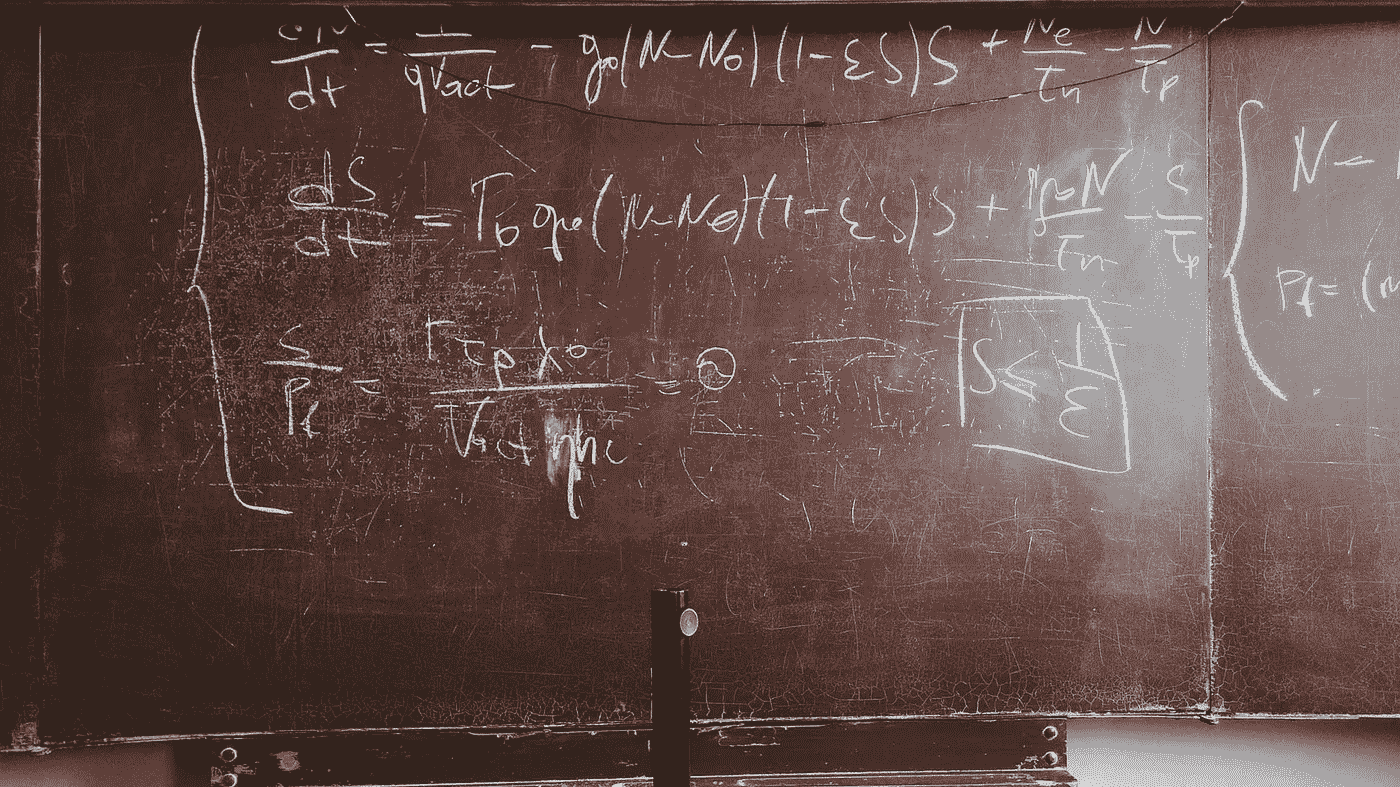 dN/dt = I/qVact - g0(N-N0)(1-εS)S + Ne/τn - N/τp
dS/dt = Γ0 g0(N-N0)(1-εS)S + N/τn - S/τp
S/Pf = Γτpλ0/Vactηhc = ϑ
S ≤ 1/ε
N =
Pf = (m